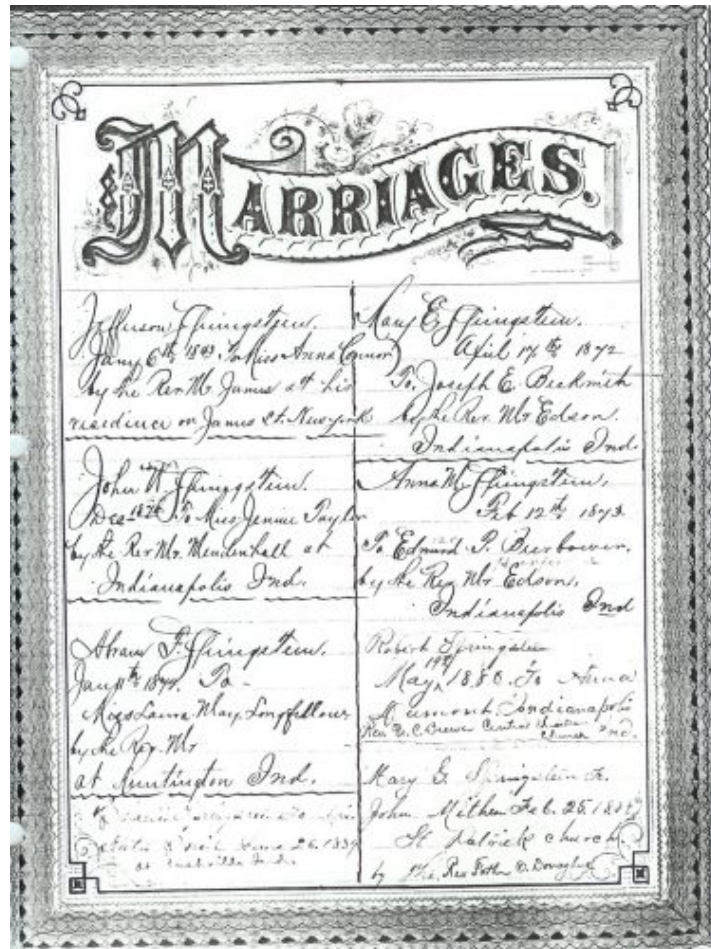 MARRIAGES.
Jefferson Springsteen.
Jany 6th 1843 To Miss Anna Connor
by the Rev Mr James at his
residence on James St. New York
John W Springsteen.
Dec 1874 To Miss Jennie Taylor
by the Rev Mr. Mendenhall at
Indianapolis Ind.
Abram F. Springsteen.
Jany 11th To
Miss Laura May Longfellow
by the Rev. Mr
at Huntington Ind.
To
June 26. 1889
at Ind.
Mary E. Springsteen.
April 17th 1872
To, Joseph E. Beckwith
by the Rev. Mr Edson.
Indianapolis Ind.
Anna M. Springsteen,
Feb 12th 1873
To Edward P. Bierbower.
by the Rev Mr Edson.
Indianapolis Ind
Robert Springsteen
May 19th 1880. To Anna
Indianapolis
Rev. E. C. Brewer Central
Church Ind.
Mary G. Springsteen
John Feb. 25.
St Patrick church.
by The Rev Father O. Donaghue